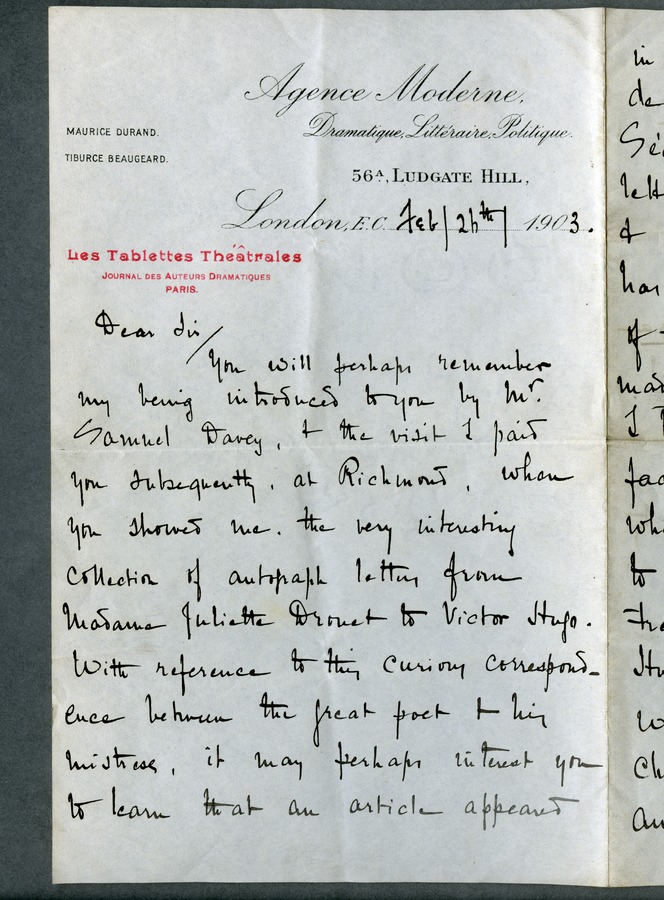 Agence Moderne,
Dramatique, Littéraire, Politique.
MAURICE DURAND.
TIBURCE BEAUGEARD.
56A, LUDGATE HILL,
London, E.C. Feb/26th/ 1903.
Les Tablettes Theâtrales
JOURNAL DES AUTEURS DRAMATIQUES
PARIS.
Dear Sir/
You will perhaps remember
my being introduced to you by Mr.
Samuel Davey, & the visit I paid
you subsequently, at Richmond, when
you showed me the very interesting
collection of autograph letters from
Madame Juliette Drouet to Victor Hugo.
With reference to this curious correspond-
ence between the great poet & his
mistress, it may perhaps interest you
to learn that an article appeared
in
de
Sé
lett
&
has
of
mad
I
fac
who
to
Fre
Hu
w
ch
an